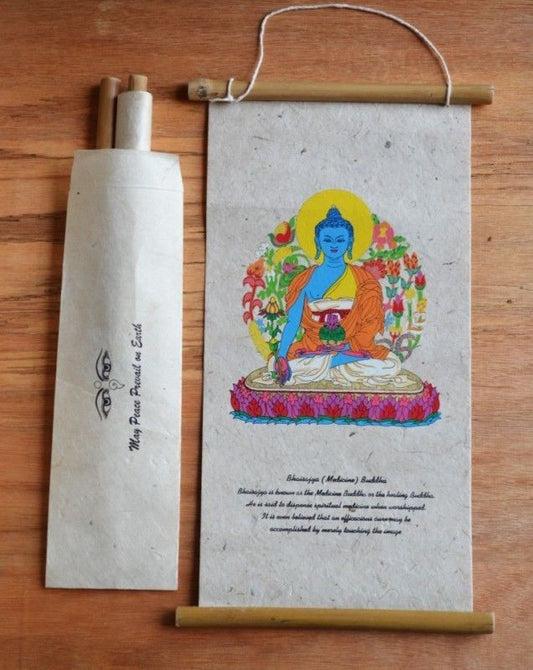 May Peace Prevail on Earth
Bhaisajya (Medicine) Buddha
Bhaisajya is known as the Medicine Buddha or the healing Buddha.
He is said to dispense spiritual medicine when worshipped.
It is even believed that an efficacious cure may be
accomplished by merely touching the image